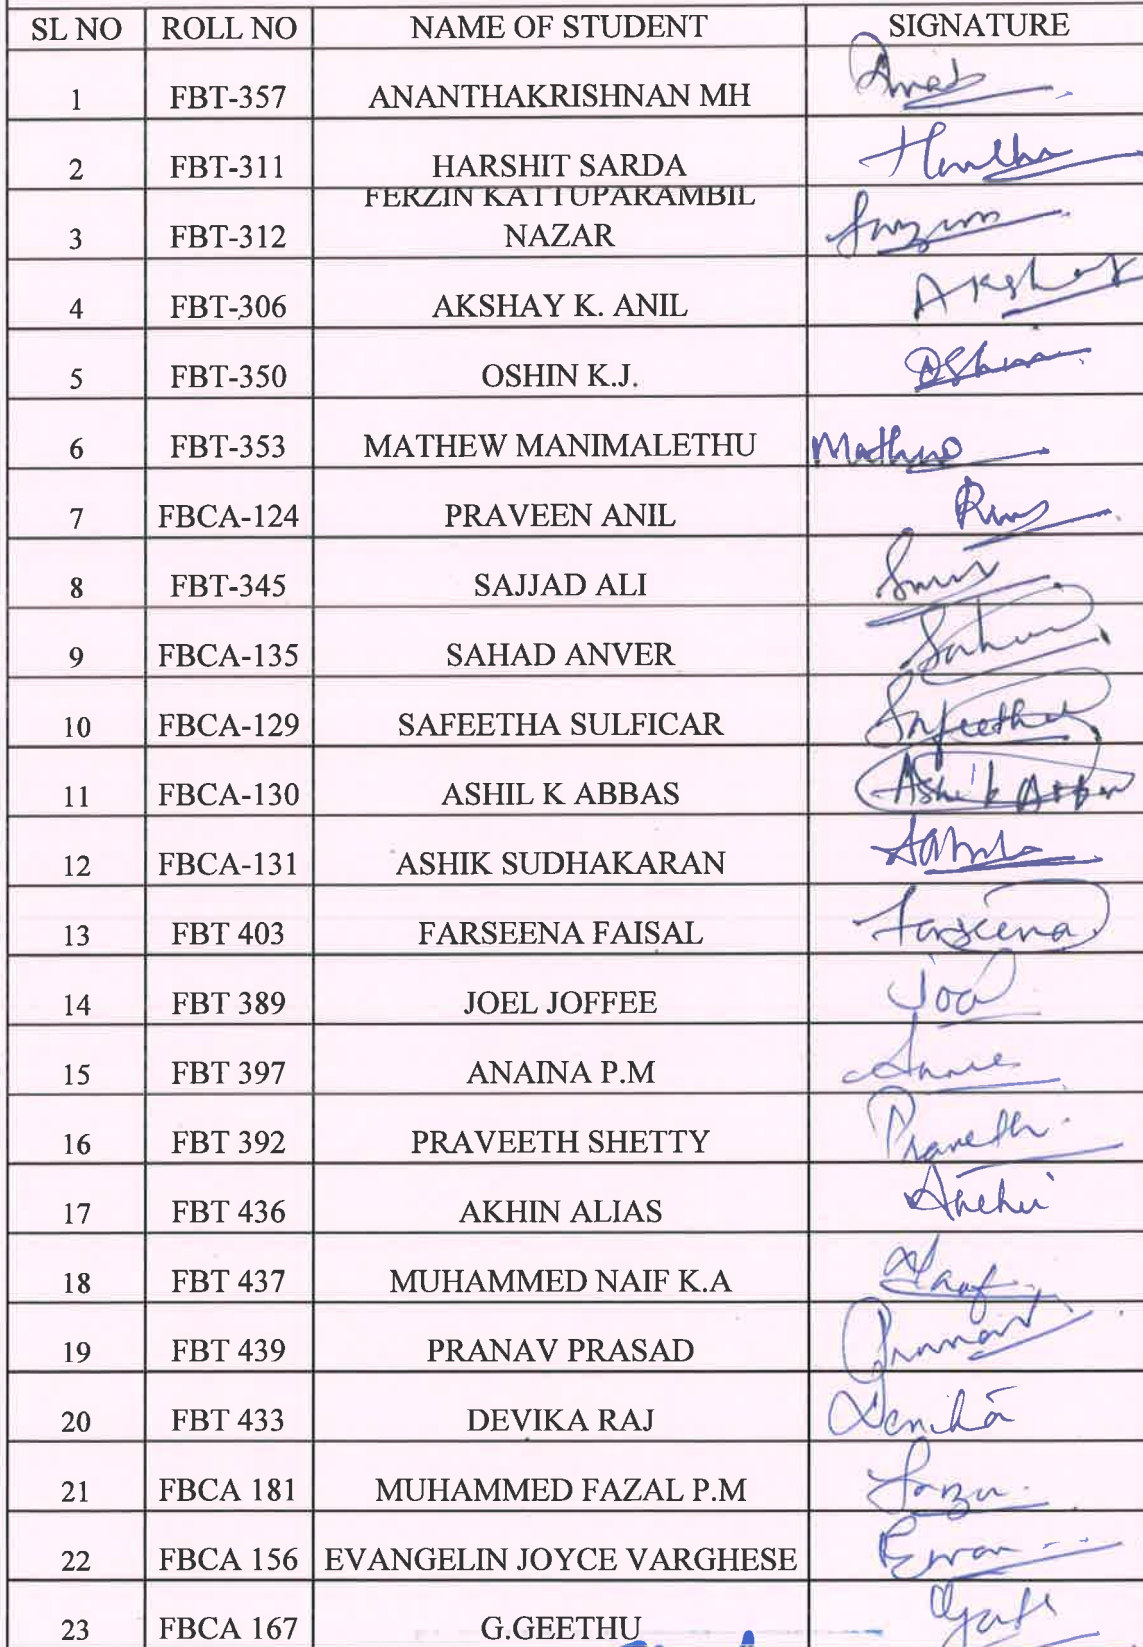 SL NO ROLL NO NAME OF STUDENT SIGNATURE
1 FBT-357 ANANTHAKRISHNAN MH
2 FBT-311 HARSHIT SARDA
FERZIN KATTUPARAMBIL
3 FBT-312 NAZAR
4 FBT-306 AKSHAY K. ANIL Akshay
5 FBT-350 OSHIN K.J. Oshin
6 FBT-353 MATHEW MANIMALETHU Mathew
7 FBCA-124 PRAVEEN ANIL
8 FBT-345 SAJJAD ALI
9 FBCA-135 SAHAD ANVER
10 FBCA-129 SAFEETHA SULFICAR Safeetha
11 FBCA-130 ASHIL K ABBAS
12 FBCA-131 ASHIK SUDHAKARAN
13 FBT 403 FARSEENA FAISAL Farseena
14 FBT 389 JOEL JOFFEE
15 FBT 397 ANAINA P.M
16 FBT 392 PRAVEETH SHETTY Praveeth
17 FBT 436 AKHIN ALIAS
18 FBT 437 MUHAMMED NAIF K.A
19 FBT 439 PRANAV PRASAD Pranav
20 FBT 433 DEVIKA RAJ
21 FBCA 181 MUHAMMED FAZAL P.M
22 FBCA 156 EVANGELIN JOYCE VARGHESE
23 FBCA 167 G.GEETHU